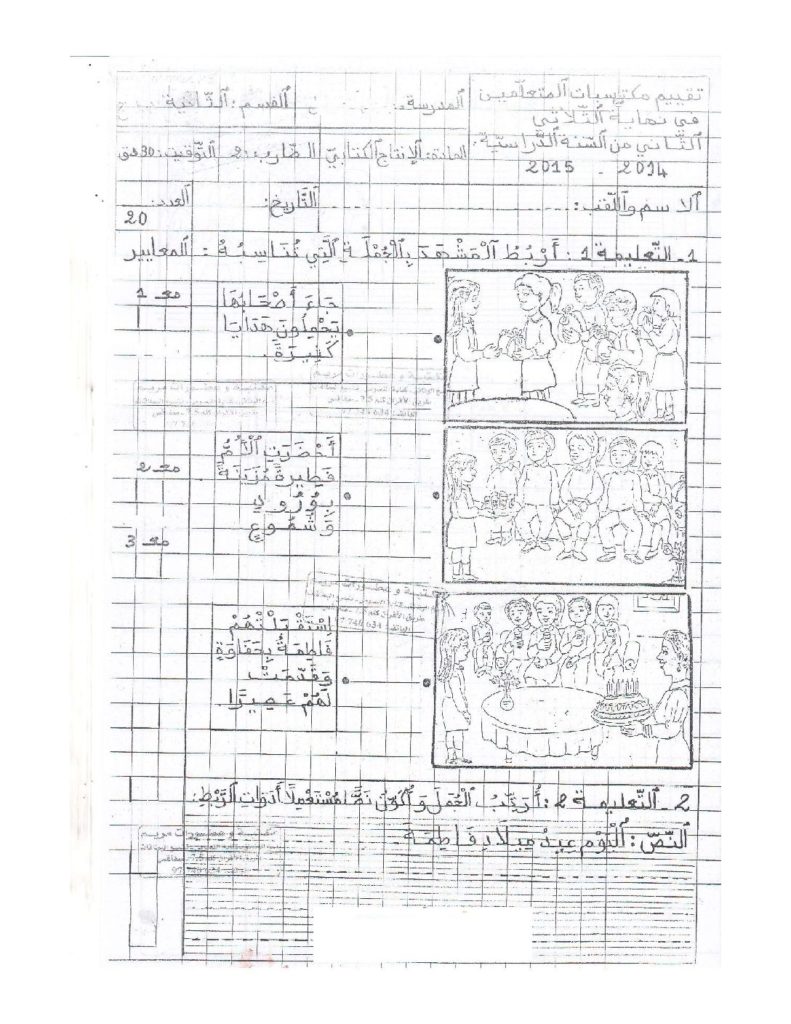 تقييم مكتسبات المتعلّمين
في نهاية الثّلاثي
الثّاني من السّنة الدّراسيّة:
2014 - 2015
المدرسة:
القسم: الثّانية
المادة: الإنتاج الكتابيّ الضّارب: 2 التّوقيت: 30 دق
الاسم واللّقب:
التّاريخ:
العدد:
20
1 - التّعليمة 1: أَرْبُطُ الْمَشْهَدَ بِالْجُمْلَةِ الَّتِي تُنَاسِبُهُ:
المعايير
مع 1
جَاءَ أَصْحَابُهَا
يَحْمِلُونَ هَدَايَا
كَثِيرَةً.
مع 2
أَحْضَرَتِ الْأُمُّ
فَطِيرَةً مُزَيَّنَةً
وَشُمُوعٍ
مع 3
اِسْتَقْبَلَتْهُمْ
فَاطِمَةُ بِحَفَاوَةٍ
وَقَدَّمَتْ
لَهُمْ عَصِيرًا.
2 - التّعليمة 2: أُرَتِّبُ الْجُمَلَ وَأُكَوِّنُ نَصًّا مُسْتَعْمِلًا أَدَوَاتِ الرَّبْطِ:
النّصّ: اَلْيَوْمَ عِيدُ مِيلَادِ فَاطِمَةَ